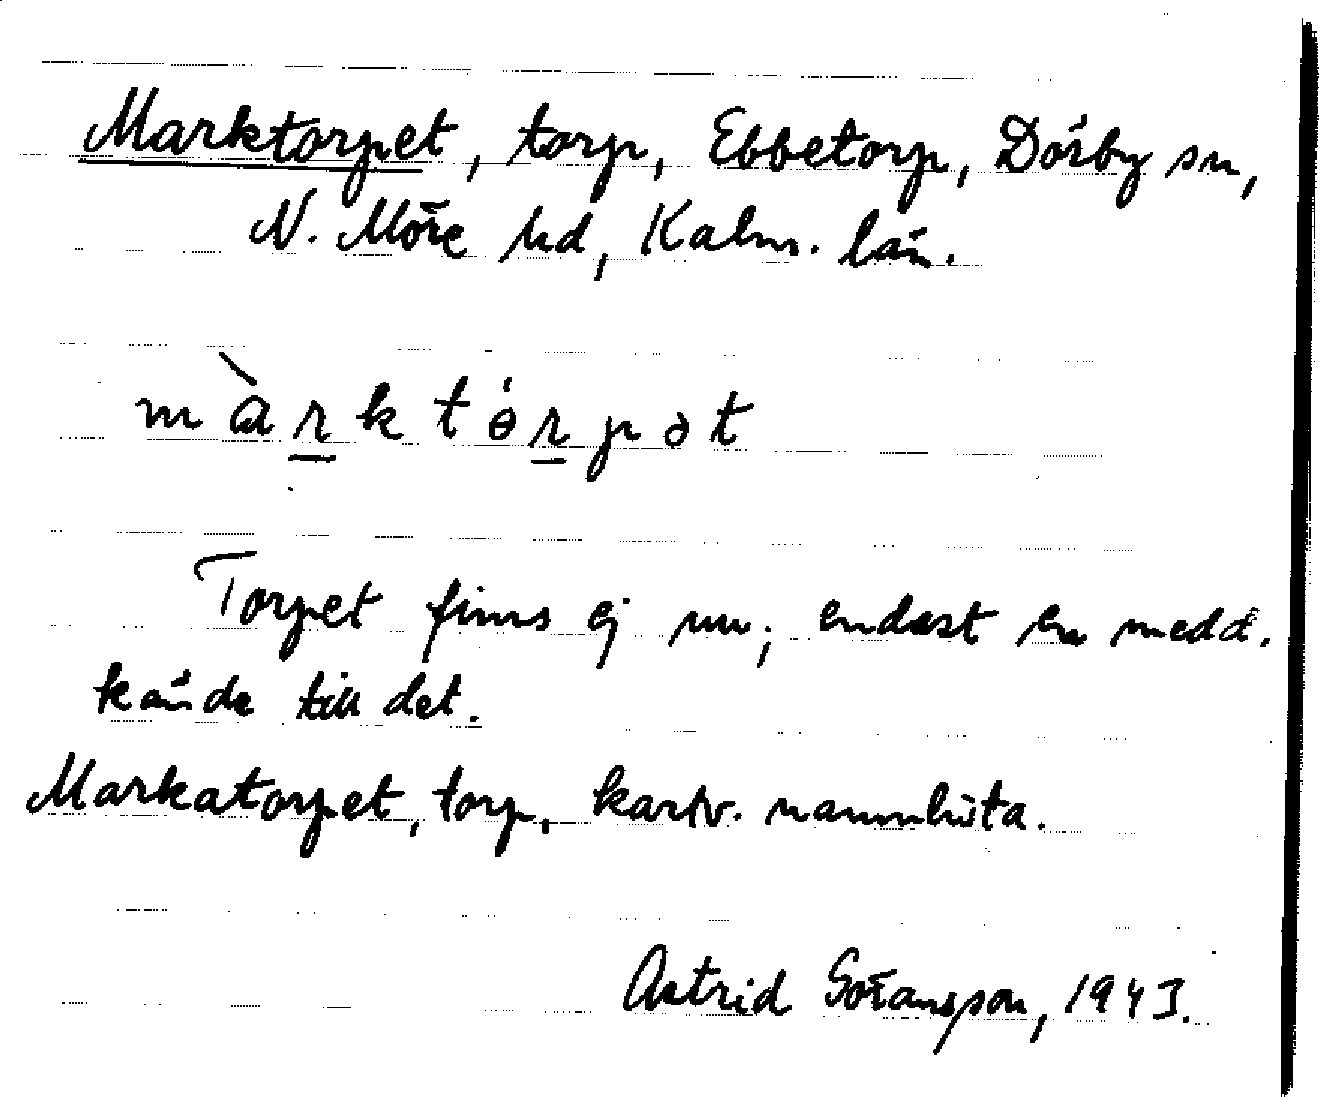 Marktorpet, torp, Ebbetorp, Dörby sn,
N. Möre hd, Kalm. län.
màrktɵ́rpət
Torpet finns ej nu; endast en medd.
kände till det.
Markatorpet, torp, kartv. namnlista.
Astrid Göransson, 1943.